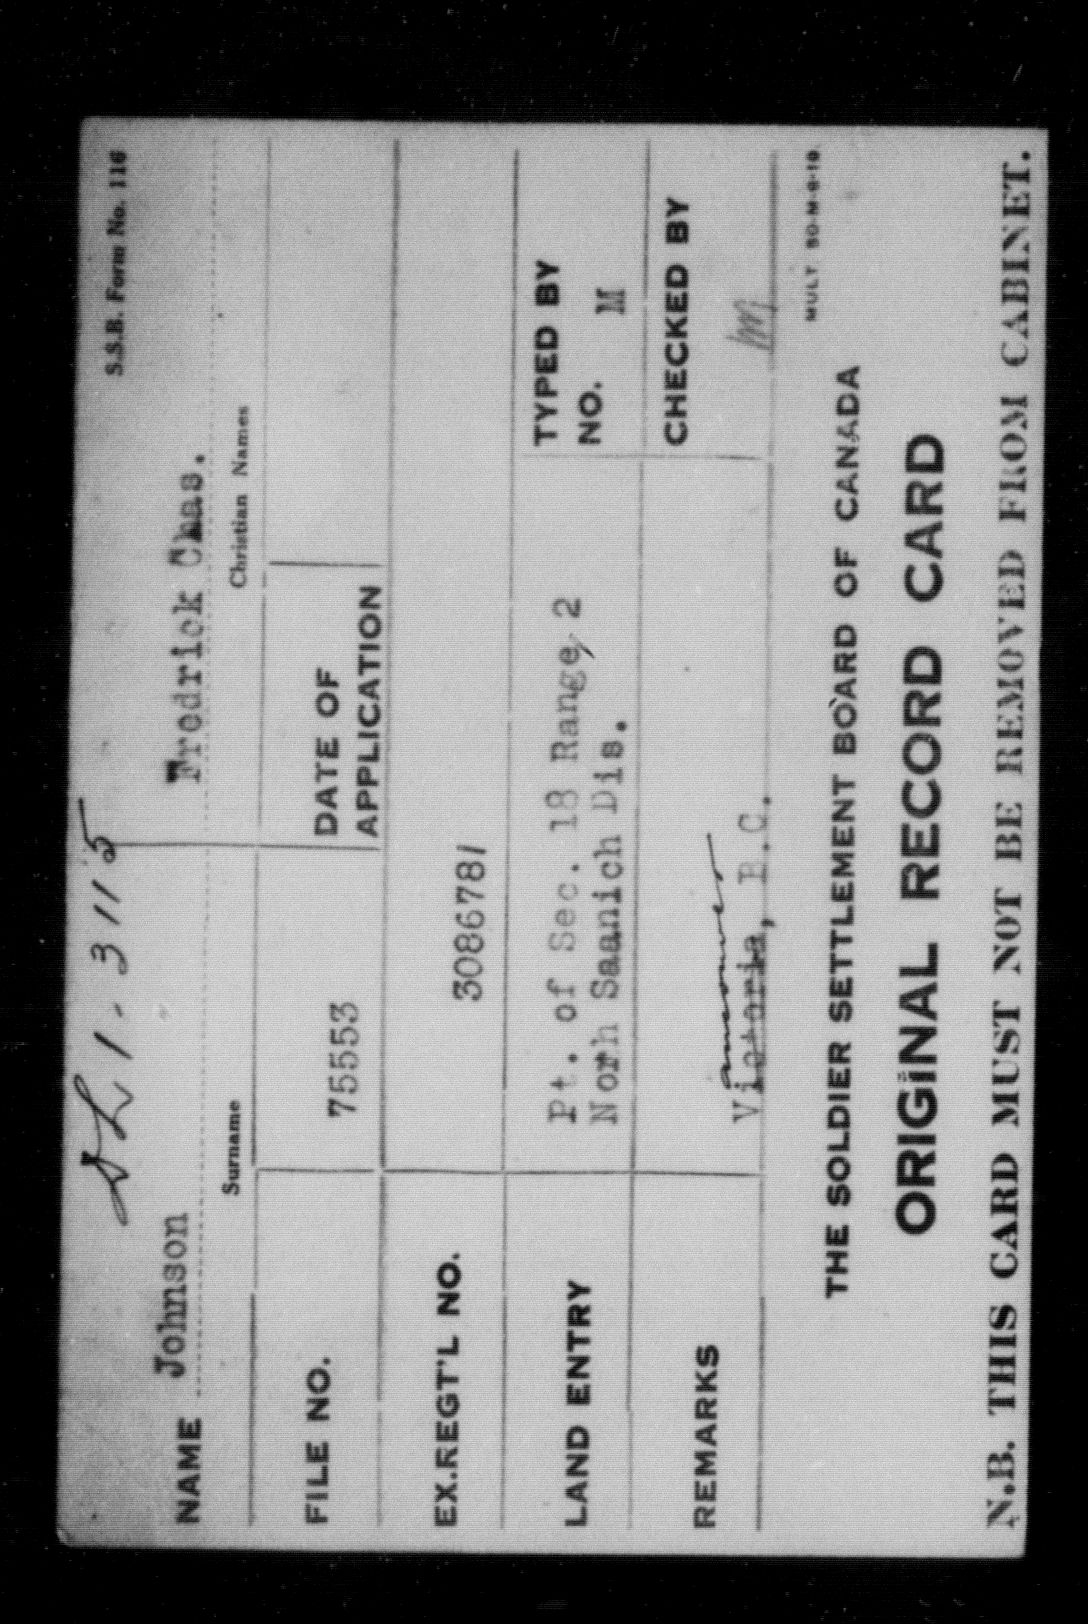 S.S.B. Form No. 116
SL 1-3115
NAME Johnson Fredrick Chas.
Surname Christian Names
FILE NO. 75553 DATE OF APPLICATION
EX.REGT'L NO. 3086781
LAND ENTRY Pt. of Sec. 18 Range, 2
Norh Saanich Dis.
TYPED BY
NO. M
REMARKS
Victoria, B.C.
CHECKED BY
M
MULT 50-M-8-19
THE SOLDIER SETTLEMENT BOARD OF CANADA
ORIGINAL RECORD CARD
N.B. THIS CARD MUST NOT BE REMOVED FROM CABINET.